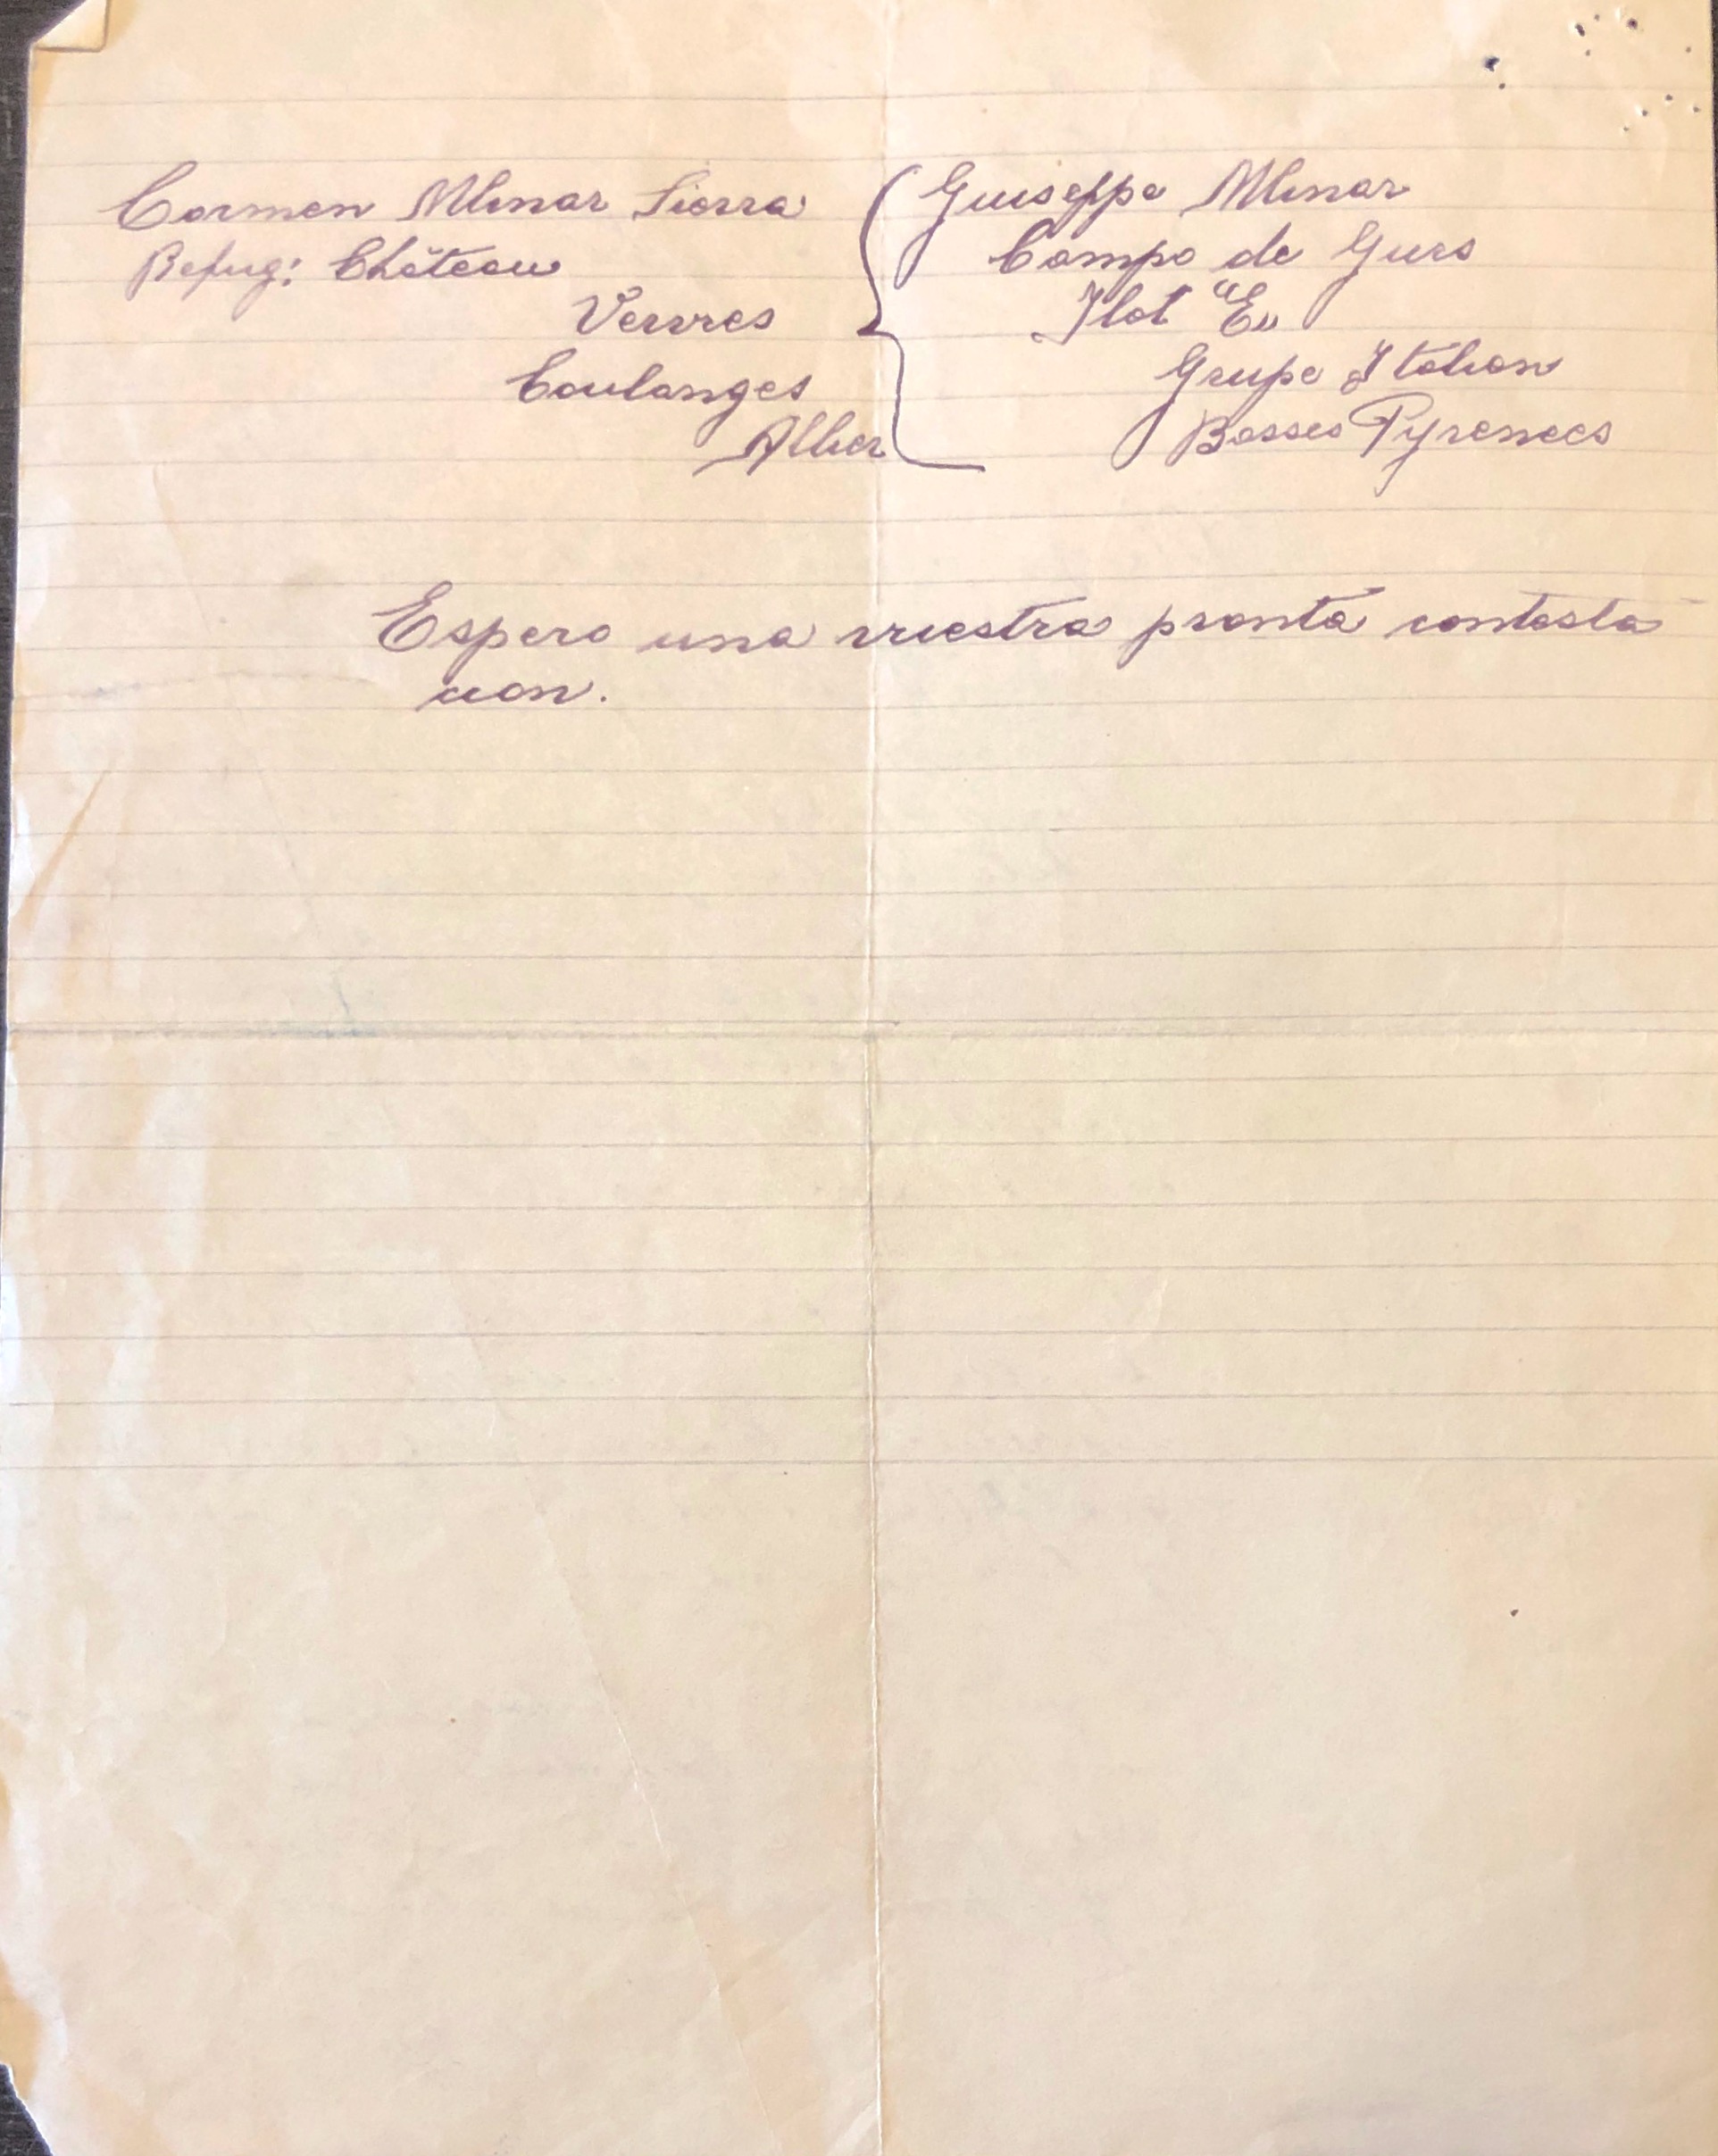 Carmen Mlinar Sierra
Refug: Château
Vervres
Coulanges
Allier
Giuseppe Mlinar
Campo de Gurs
Ilot "E"
Grupe Italian
Basses Pyrenees
Espero una vuestra pronta contesta
cion.